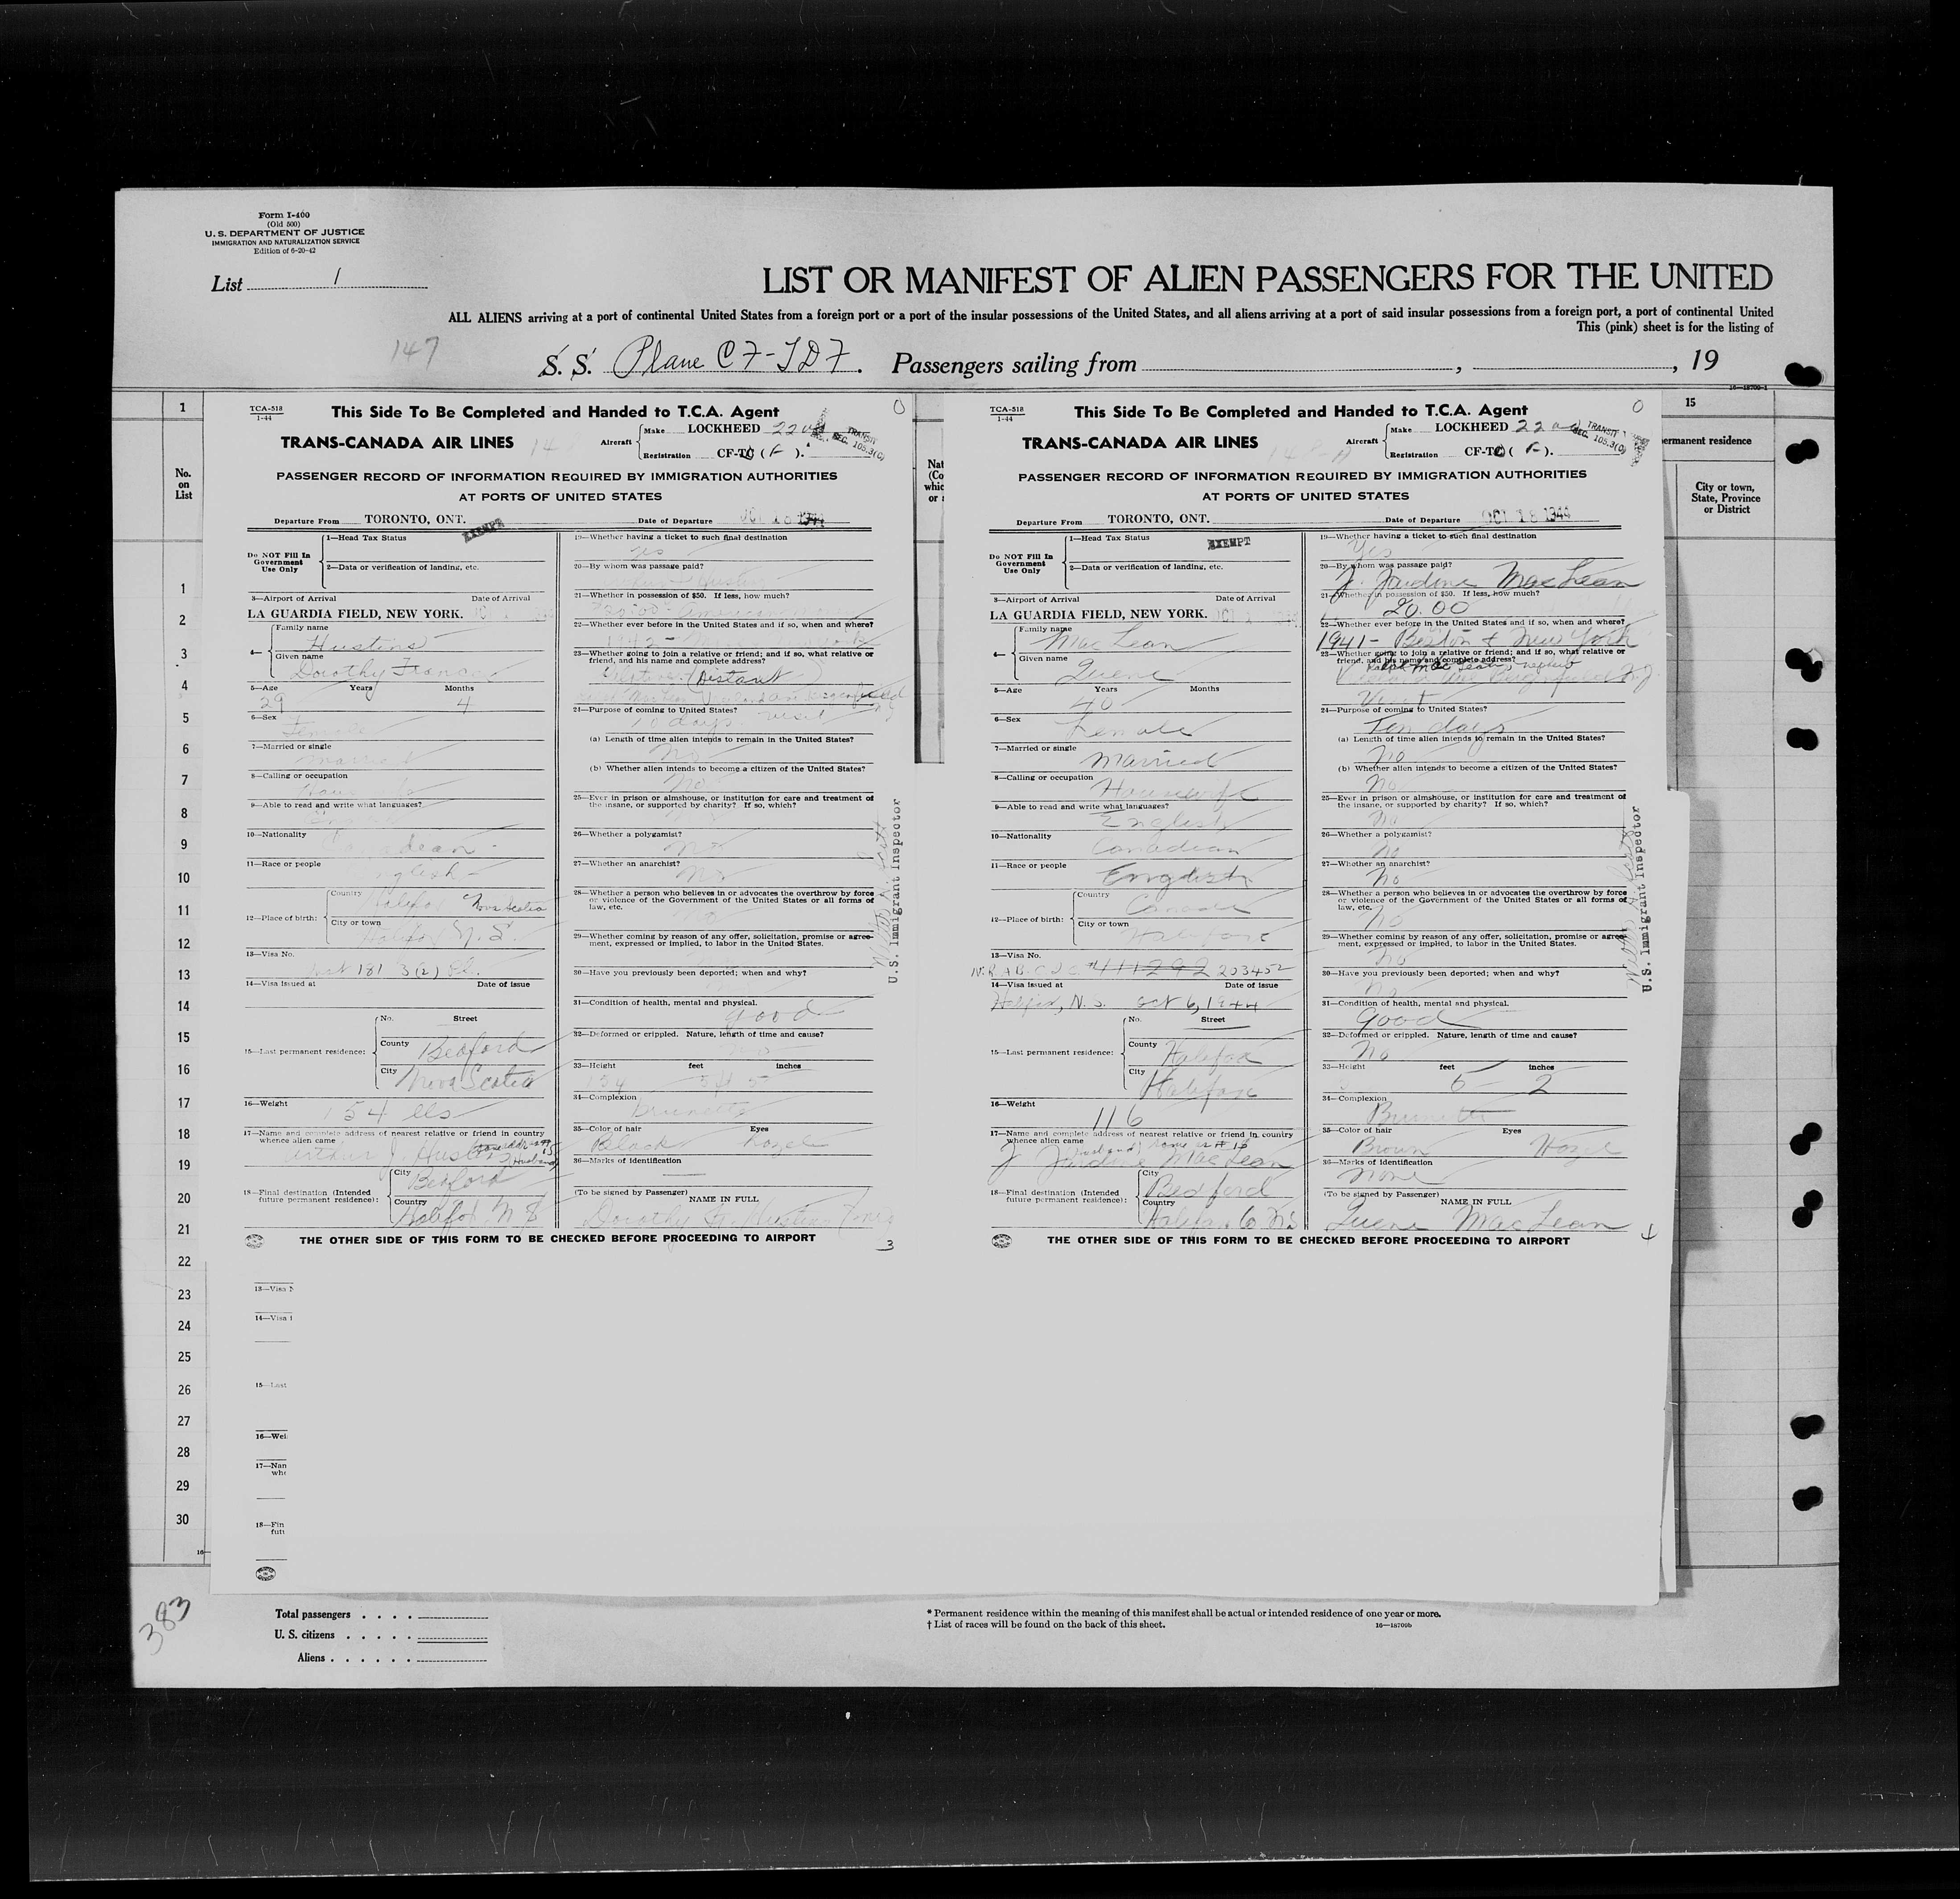 Form I-400
(Old 500)
U. S. DEPARTMENT OF JUSTICE
IMMIGRATION AND NATURALIZATION SERVICE
Edition of 6-20-42
List 1
LIST OR MANIFEST OF ALIEN PASSENGERS FOR THE UNITED
ALL ALIENS arriving at a port of continental United States from a foreign port or a port of the insular possessions of the United States, and all aliens arriving at a port of said insular possessions from a foreign port, a port of continental United
This (pink) sheet is for the listing of
147
S. S. Plane CF-TDF. Passengers sailing from , , 19
16—18700-1
1
No.
on
List
1
2
3
4
5
6
7
8
9
10
11
12
13
14
15
16
17
18
19
20
21
22
23
24
25
26
27
28
29
30
TCA-518
1-44
This Side To Be Completed and Handed to T.C.A. Agent
0
TRANS-CANADA AIR LINES
Aircraft
Make LOCKHEED
Registration CF-TC ( F ).
TRANSIT
SEC. 105.3(C)
PASSENGER RECORD OF INFORMATION REQUIRED BY IMMIGRATION AUTHORITIES
AT PORTS OF UNITED STATES
Departure From TORONTO, ONT.
Date of Departure OCT 18 1944
EXEMPT
Do NOT Fill In
Government
Use Only
1—Head Tax Status
2—Data or verification of landing, etc.
3—Airport of Arrival Date of Arrival
LA GUARDIA FIELD, NEW YORK.
4—
Family name
Hustins
Given name
Dorothy
5—Age Years Months
29 4
6—Sex
Female
7—Married or single
Married
8—Calling or occupation
9—Able to read and write what languages?
10—Nationality
Canadian
11—Race or people
English
12—Place of birth:
Country
Halifax Nova Scotia
City or town
Halifax N.S.
13—Visa No.
181 3(2)
14—Visa issued at Date of issue
15—Last permanent residence:
No. Street
County Bedford
City Nova Scotia
16—Weight
154 lbs
17—Name and complete address of nearest relative or friend in country
whence alien came
Arthur J. Hustins
18—Final destination (Intended
future permanent residence):
City
Bedford
Country
Halifax N S
19—Whether having a ticket to such final destination
yes
20—By whom was passage paid?
21—Whether in possession of $50. If less, how much?
22—Whether ever before in the United States and if so, when and where?
1942
23—Whether going to join a relative or friend; and if so, what relative or
friend, and his name and complete address?
(Distant
24—Purpose of coming to United States?
10 days visit
(a) Length of time alien intends to remain in the United States?
No
(b) Whether alien intends to become a citizen of the United States?
No
25—Ever in prison or almshouse, or institution for care and treatment of
the insane, or supported by charity? If so, which?
26—Whether a polygamist?
No
27—Whether an anarchist?
No
28—Whether a person who believes in or advocates the overthrow by force
or violence of the Government of the United States or all forms of
law, etc.
29—Whether coming by reason of any offer, solicitation, promise or agree-
ment, expressed or implied, to labor in the United States.
30—Have you previously been deported; when and why?
31—Condition of health, mental and physical.
good
32—Deformed or crippled. Nature, length of time and cause?
33—Height feet inches
34—Complexion
brunette
35—Color of hair Eyes
Black hazel
36—Marks of identification
(To be signed by Passenger) NAME IN FULL
U.S. Immigrant Inspector
THE OTHER SIDE OF THIS FORM TO BE CHECKED BEFORE PROCEEDING TO AIRPORT
3
TCA-518
1-44
This Side To Be Completed and Handed to T.C.A. Agent
0
TRANS-CANADA AIR LINES
Aircraft
Make LOCKHEED
Registration CF-TC ( F ).
TRANSIT
SEC. 105.3(C)
PASSENGER RECORD OF INFORMATION REQUIRED BY IMMIGRATION AUTHORITIES
AT PORTS OF UNITED STATES
Departure From TORONTO, ONT.
Date of Departure OCT 18 1944
EXEMPT
Do NOT Fill In
Government
Use Only
1—Head Tax Status
2—Data or verification of landing, etc.
3—Airport of Arrival Date of Arrival
LA GUARDIA FIELD, NEW YORK.
4—
Family name
MacLean
Given name
Quene
5—Age Years Months
40
6—Sex
Female
7—Married or single
Married
8—Calling or occupation
Housewife
9—Able to read and write what languages?
English
10—Nationality
Canadian
11—Race or people
English
12—Place of birth:
Country
Canada
City or town
Halifax
13—Visa No.
411292 203452
14—Visa issued at Date of issue
Halifax, N.S. Oct 6, 1944
15—Last permanent residence:
No. Street
County
Halifax
City
Halifax
16—Weight
116
17—Name and complete address of nearest relative or friend in country
whence alien came
(husband)
J Jardine MacLean
18—Final destination (Intended
future permanent residence):
City
Bedford
Country
Halifax Co NS
19—Whether having a ticket to such final destination
Yes
20—By whom was passage paid?
J. Jardine MacLean
21—Whether in possession of $50. If less, how much?
20.00
22—Whether ever before in the United States and if so, when and where?
1941 - Boston & New York
23—Whether going to join a relative or friend, and if so, what relative or
friend, and his name and complete address?
MacLean, nephew
Visit
24—Purpose of coming to United States?
Ten days
(a) Length of time alien intends to remain in the United States?
No
(b) Whether alien intends to become a citizen of the United States?
No
25—Ever in prison or almshouse, or institution for care and treatment of
the insane, or supported by charity? If so, which?
No
26—Whether a polygamist?
No
27—Whether an anarchist?
No
28—Whether a person who believes in or advocates the overthrow by force
or violence of the Government of the United States or all forms of
law, etc.
No
29—Whether coming by reason of any offer, solicitation, promise or agree-
ment, expressed or implied, to labor in the United States.
No
30—Have you previously been deported; when and why?
No
31—Condition of health, mental and physical.
Good
32—Deformed or crippled. Nature, length of time and cause?
No
33—Height feet inches
5 2
34—Complexion
Brunette
35—Color of hair Eyes
Brown Hazel
36—Marks of identification
None
(To be signed by Passenger) NAME IN FULL
Quene MacLean
U.S. Immigrant Inspector
THE OTHER SIDE OF THIS FORM TO BE CHECKED BEFORE PROCEEDING TO AIRPORT
4
15
ermanent residence
City or town,
State, Province
or District
Nat
(Co
whic
or
13—Visa N
14—Visa I
15—Last
16—Wei
17—Nan
whe
18—Fin
futu
16—
383
Total passengers
U. S. citizens
Aliens
* Permanent residence within the meaning of this manifest shall be actual or intended residence of one year or more.
† List of races will be found on the back of this sheet.
16—18700b